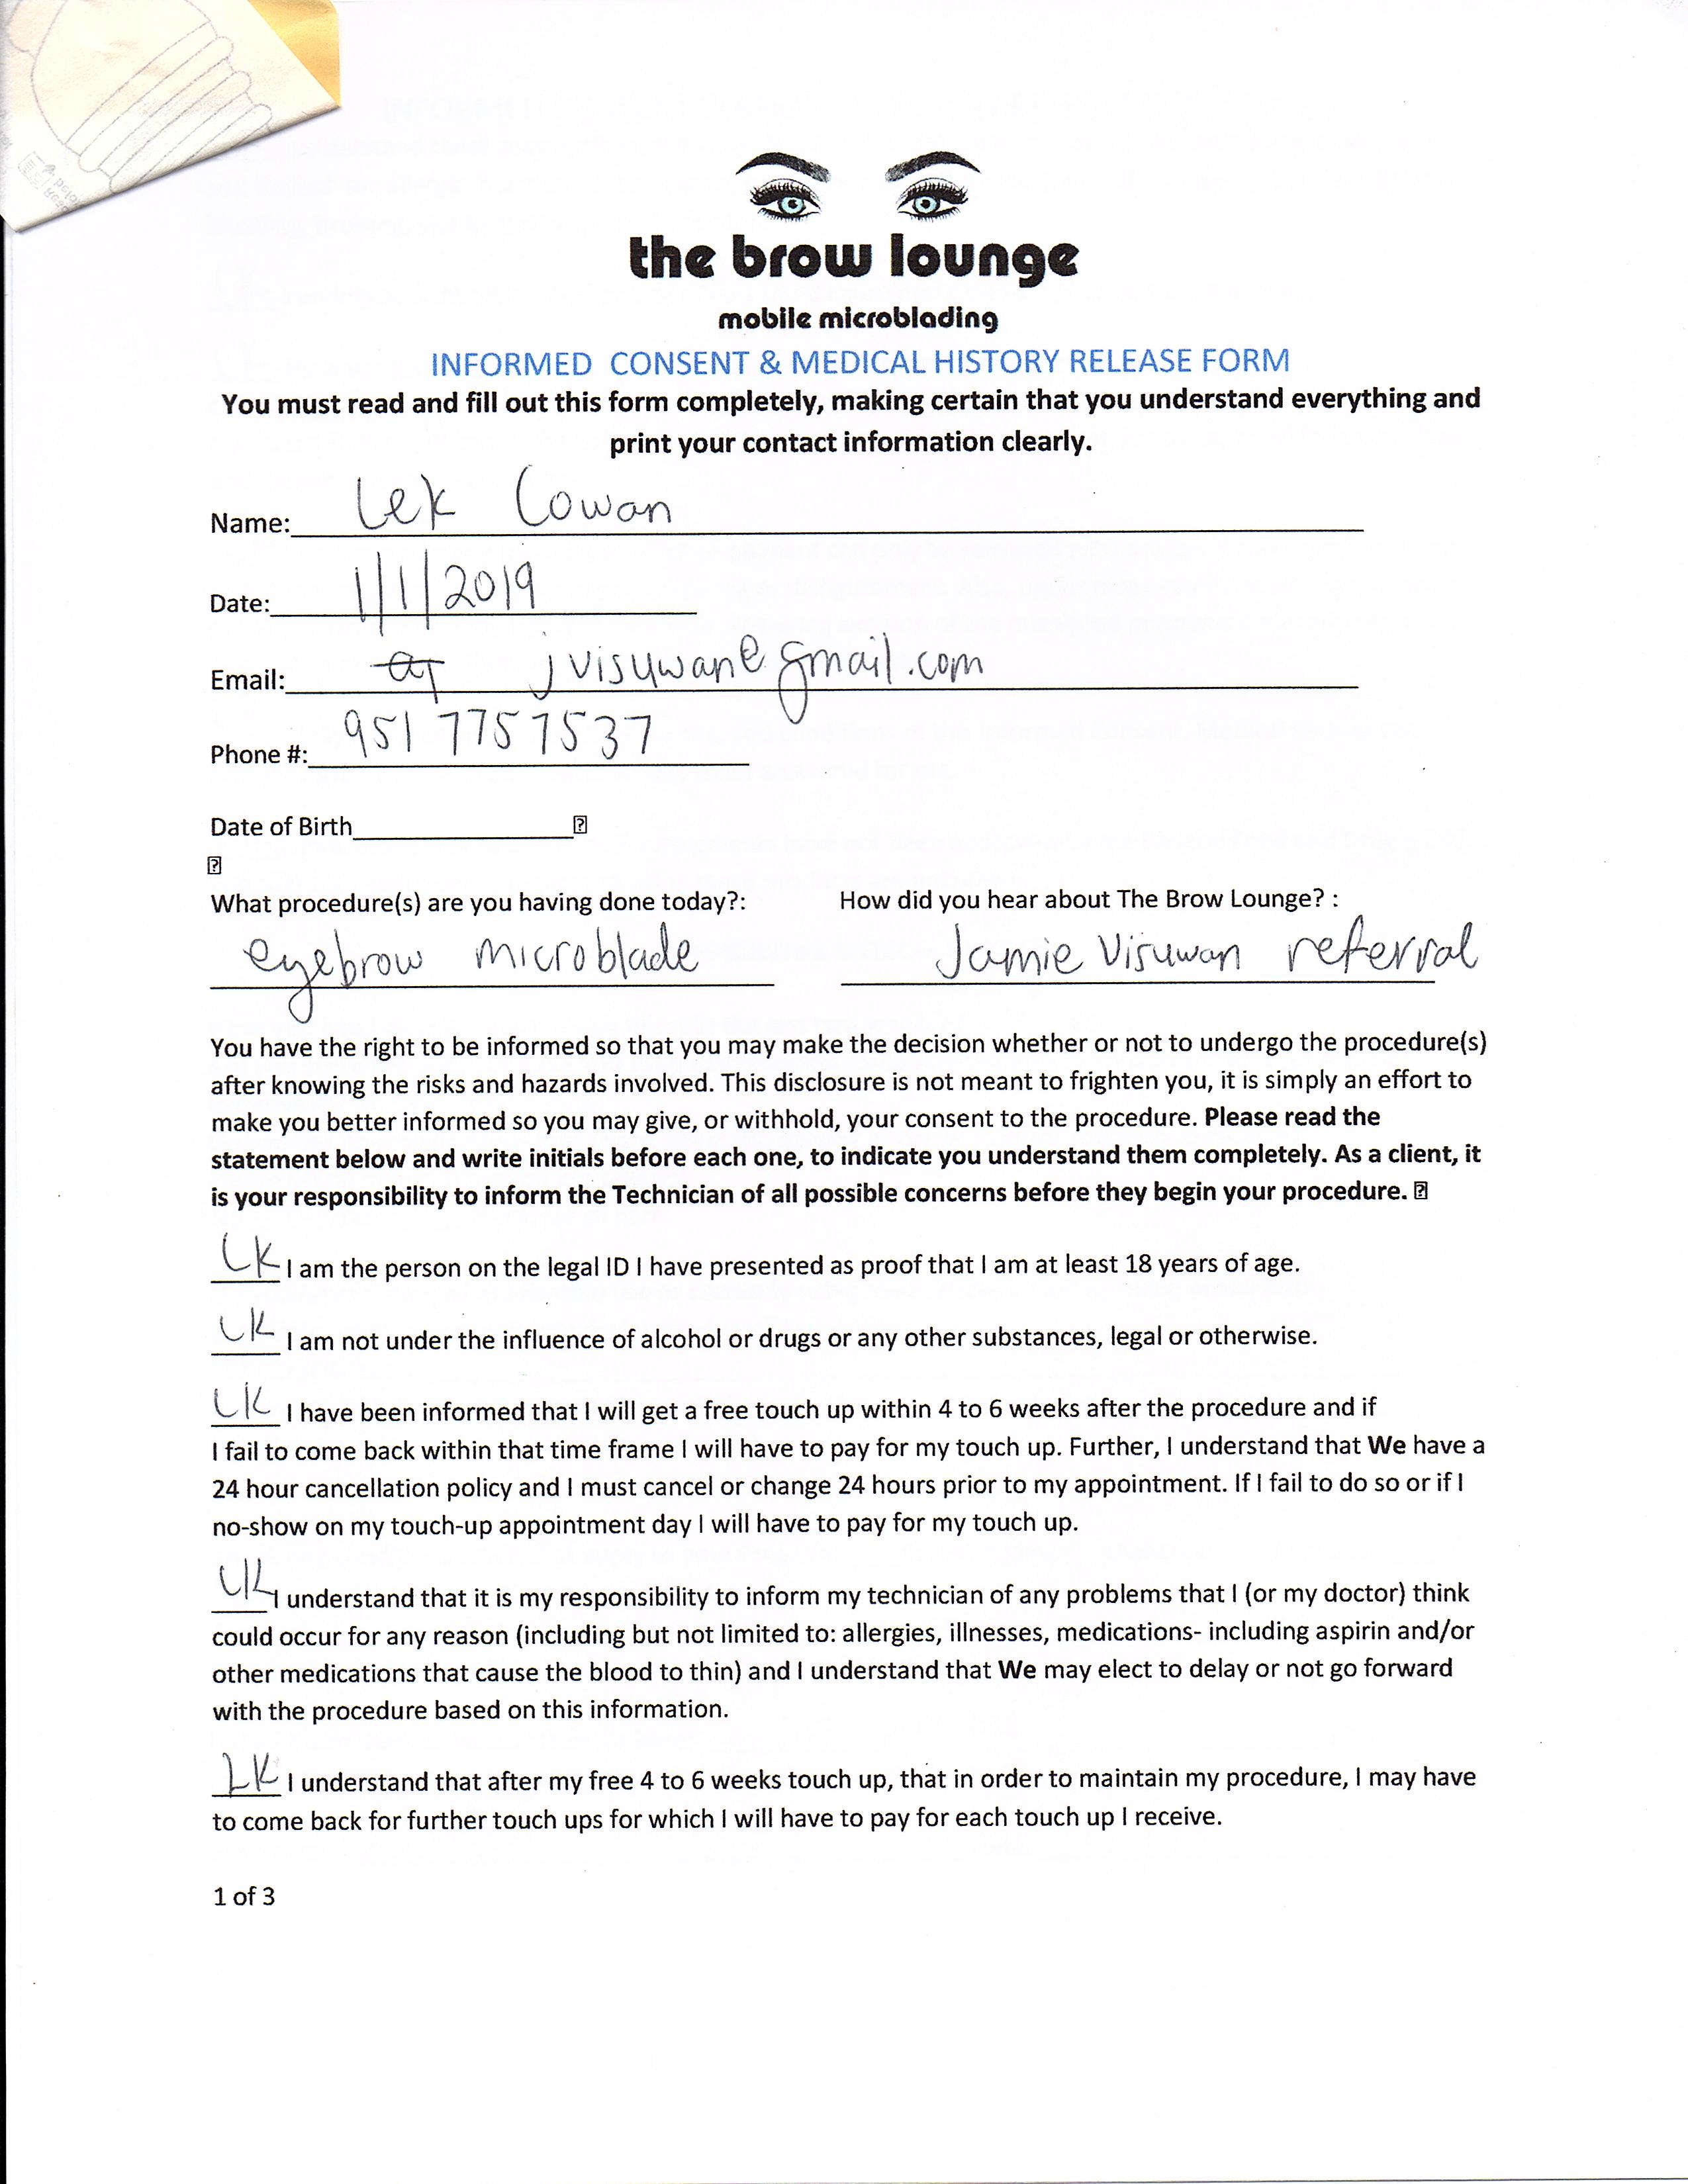 the brow lounge
mobile microblading
INFORMED CONSENT & MEDICAL HISTORY RELEASE FORM
You must read and fill out this form completely, making certain that you understand everything and
print your contact information clearly.
Name: Lek Cowan
Date: 1/1/2019
Email: jvisuwan@gmail.com
Phone #: 951 775 7537
Date of Birth
What procedure(s) are you having done today?: How did you hear about The Brow Lounge? :
eyebrow microblade Jamie Visuwan referral
You have the right to be informed so that you may make the decision whether or not to undergo the procedure(s)
after knowing the risks and hazards involved. This disclosure is not meant to frighten you, it is simply an effort to
make you better informed so you may give, or withhold, your consent to the procedure. Please read the
statement below and write initials before each one, to indicate you understand them completely. As a client, it
is your responsibility to inform the Technician of all possible concerns before they begin your procedure.
LK I am the person on the legal ID I have presented as proof that I am at least 18 years of age.
LK I am not under the influence of alcohol or drugs or any other substances, legal or otherwise.
LK I have been informed that I will get a free touch up within 4 to 6 weeks after the procedure and if
I fail to come back within that time frame I will have to pay for my touch up. Further, I understand that We have a
24 hour cancellation policy and I must cancel or change 24 hours prior to my appointment. If I fail to do so or if I
no-show on my touch-up appointment day I will have to pay for my touch up.
LK I understand that it is my responsibility to inform my technician of any problems that I (or my doctor) think
could occur for any reason (including but not limited to: allergies, illnesses, medications- including aspirin and/or
other medications that cause the blood to thin) and I understand that We may elect to delay or not go forward
with the procedure based on this information.
LK I understand that after my free 4 to 6 weeks touch up, that in order to maintain my procedure, I may have
to come back for further touch ups for which I will have to pay for each touch up I receive.
1 of 3